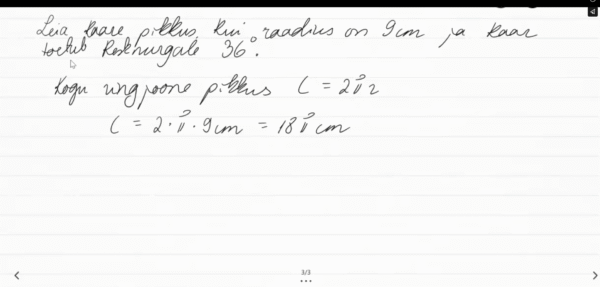 Leia kaare pikkus, kui raadius on 9cm ja kaar
toetub kesknurgale 36°.
Kogu ringjoone pikkus C = 2πr
C = 2·π·9cm = 18πcm
3/3